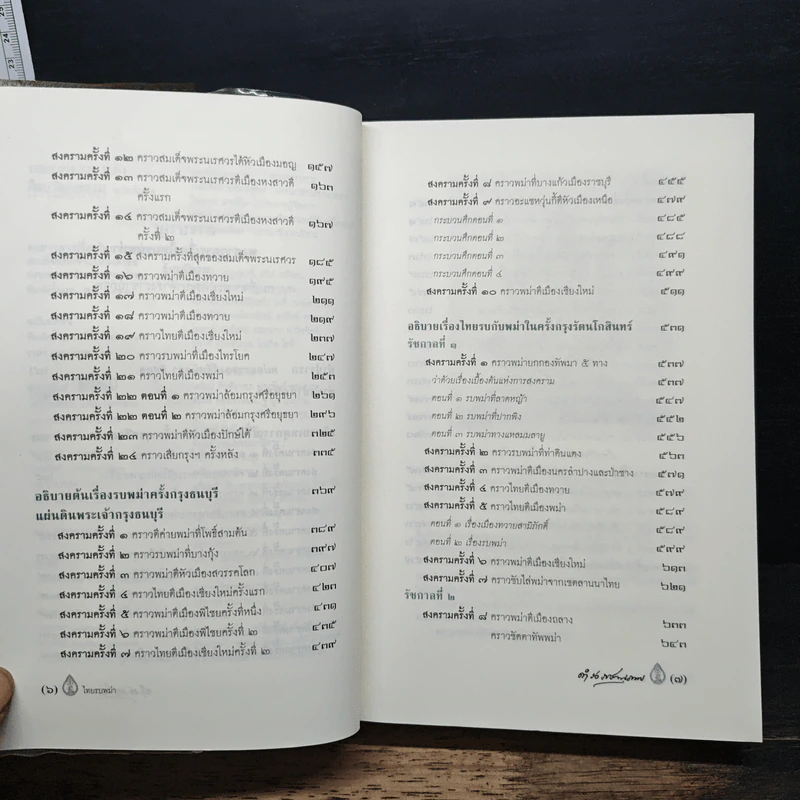 25
24
23
สงครามครั้งที่ ๑๒ คราวสมเด็จพระนเรศวรได้หัวเมืองมอญ ๑๕๗
สงครามครั้งที่ ๑๓ คราวสมเด็จพระนเรศวรตีเมืองหงสาวดี ๑๖๓
ครั้งแรก
สงครามครั้งที่ ๑๔ คราวสมเด็จพระนเรศวรตีเมืองหงสาวดี ๑๖๗
ครั้งที่ ๒
สงครามครั้งที่ ๑๕ สงครามครั้งที่สุดของสมเด็จพระนเรศวร ๑๘๕
สงครามครั้งที่ ๑๖ คราวพม่าตีเมืองทวาย ๑๙๕
สงครามครั้งที่ ๑๗ คราวพม่าตีเมืองเชียงใหม่ ๒๑๑
สงครามครั้งที่ ๑๘ คราวพม่าตีเมืองทวาย ๒๑๙
สงครามครั้งที่ ๑๙ คราวไทยตีเมืองเชียงใหม่ ๒๓๗
สงครามครั้งที่ ๒๐ คราวรบพม่าที่เมืองไทรโยค ๒๔๗
สงครามครั้งที่ ๒๑ คราวไทยตีเมืองพม่า ๒๕๓
สงครามครั้งที่ ๒๒ ตอนที่ ๑ คราวพม่าล้อมกรุงศรีอยุธยา ๒๖๑
สงครามครั้งที่ ๒๒ ตอนที่ ๒ คราวพม่าล้อมกรุงศรีอยุธยา ๒๙๖
สงครามครั้งที่ ๒๓ คราวพม่าตีหัวเมืองปักษ์ใต้ ๓๒๕
สงครามครั้งที่ ๒๔ คราวเสียกรุงฯ ครั้งหลัง ๓๓๕
อธิบายต้นเรื่องรบพม่าครั้งกรุงธนบุรี ๓๖๙
แผ่นดินพระเจ้ากรุงธนบุรี
สงครามครั้งที่ ๑ คราวตีค่ายพม่าที่โพธิ์สามต้น ๓๘๙
สงครามครั้งที่ ๒ คราวรบพม่าที่บางกุ้ง ๓๙๗
สงครามครั้งที่ ๓ คราวพม่าตีหัวเมืองสวรรคโลก ๔๐๗
สงครามครั้งที่ ๔ คราวไทยตีเมืองเชียงใหม่ครั้งแรก ๔๒๓
สงครามครั้งที่ ๕ คราวพม่าตีเมืองพิไชยครั้งที่หนึ่ง ๔๓๑
สงครามครั้งที่ ๖ คราวพม่าตีเมืองพิไชยครั้งที่ ๒ ๔๓๕
สงครามครั้งที่ ๗ คราวไทยตีเมืองเชียงใหม่ครั้งที่ ๒ ๔๓๙
(๖) ไทยรบพม่า
สงครามครั้งที่ ๘ คราวพม่าที่บางแก้วเมืองราชบุรี ๔๕๕
สงครามครั้งที่ ๙ คราวอะแซหวุ่นกี้ตีหัวเมืองเหนือ ๔๗๙
กระบวนศึกตอนที่ ๑ ๔๘๕
กระบวนศึกตอนที่ ๒ ๔๘๘
กระบวนศึกตอนที่ ๓ ๔๙๑
กระบวนศึกตอนที่ ๔ ๔๙๙
สงครามครั้งที่ ๑๐ คราวพม่าตีเมืองเชียงใหม่ ๕๑๑
อธิบายเรื่องไทยรบกับพม่าในครั้งกรุงรัตนโกสินทร์ ๕๓๑
รัชกาลที่ ๑
สงครามครั้งที่ ๑ คราวพม่ายกกองทัพมา ๕ ทาง ๕๓๗
ว่าด้วยเรื่องเบื้องต้นแห่งการสงคราม ๕๓๗
ตอนที่ ๑ รบพม่าที่ลาดหญ้า ๕๔๗
ตอนที่ ๒ รบพม่าที่ปากพิง ๕๕๒
ตอนที่ ๓ รบพม่าทางแหลมมลายู ๕๕๖
สงครามครั้งที่ ๒ คราวรบพม่าที่ท่าดินแดง ๕๖๓
สงครามครั้งที่ ๓ คราวพม่าตีเมืองนครลำปางและป่าซาง ๕๗๑
สงครามครั้งที่ ๔ คราวไทยตีเมืองทวาย ๕๗๙
สงครามครั้งที่ ๕ คราวไทยตีเมืองพม่า ๕๘๙
ตอนที่ ๑ เรื่องเมืองทวายสามิภักดิ์ ๕๘๙
ตอนที่ ๒ เรื่องรบพม่า ๕๙๙
สงครามครั้งที่ ๖ คราวพม่าตีเมืองเชียงใหม่ ๖๑๓
สงครามครั้งที่ ๗ คราวขับไล่พม่าจากเขตลานนาไทย ๖๒๑
รัชกาลที่ ๒
สงครามครั้งที่ ๘ คราวพม่าตีเมืองถลาง ๖๓๓
คราวขัดตาทัพพม่า ๖๔๓
(๗)